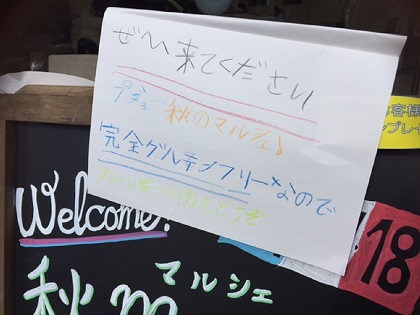 ぜひ来てください
秋のマルシェ!
完全グルテンフリーなので
アレルギーの方もどうぞ
客様
プレ
Welcome!
18
マルシェ
秋